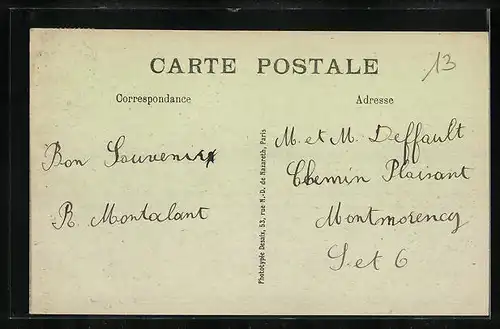 13
CARTE POSTALE
Correspondance
Adresse
Bon Souvenir
R. Montalant
Phototypie Desaix, 53, rue N.-D. de Nazareth, Paris
M. et M. Deffault
Chemin Plaisant
Montmorency
S et O